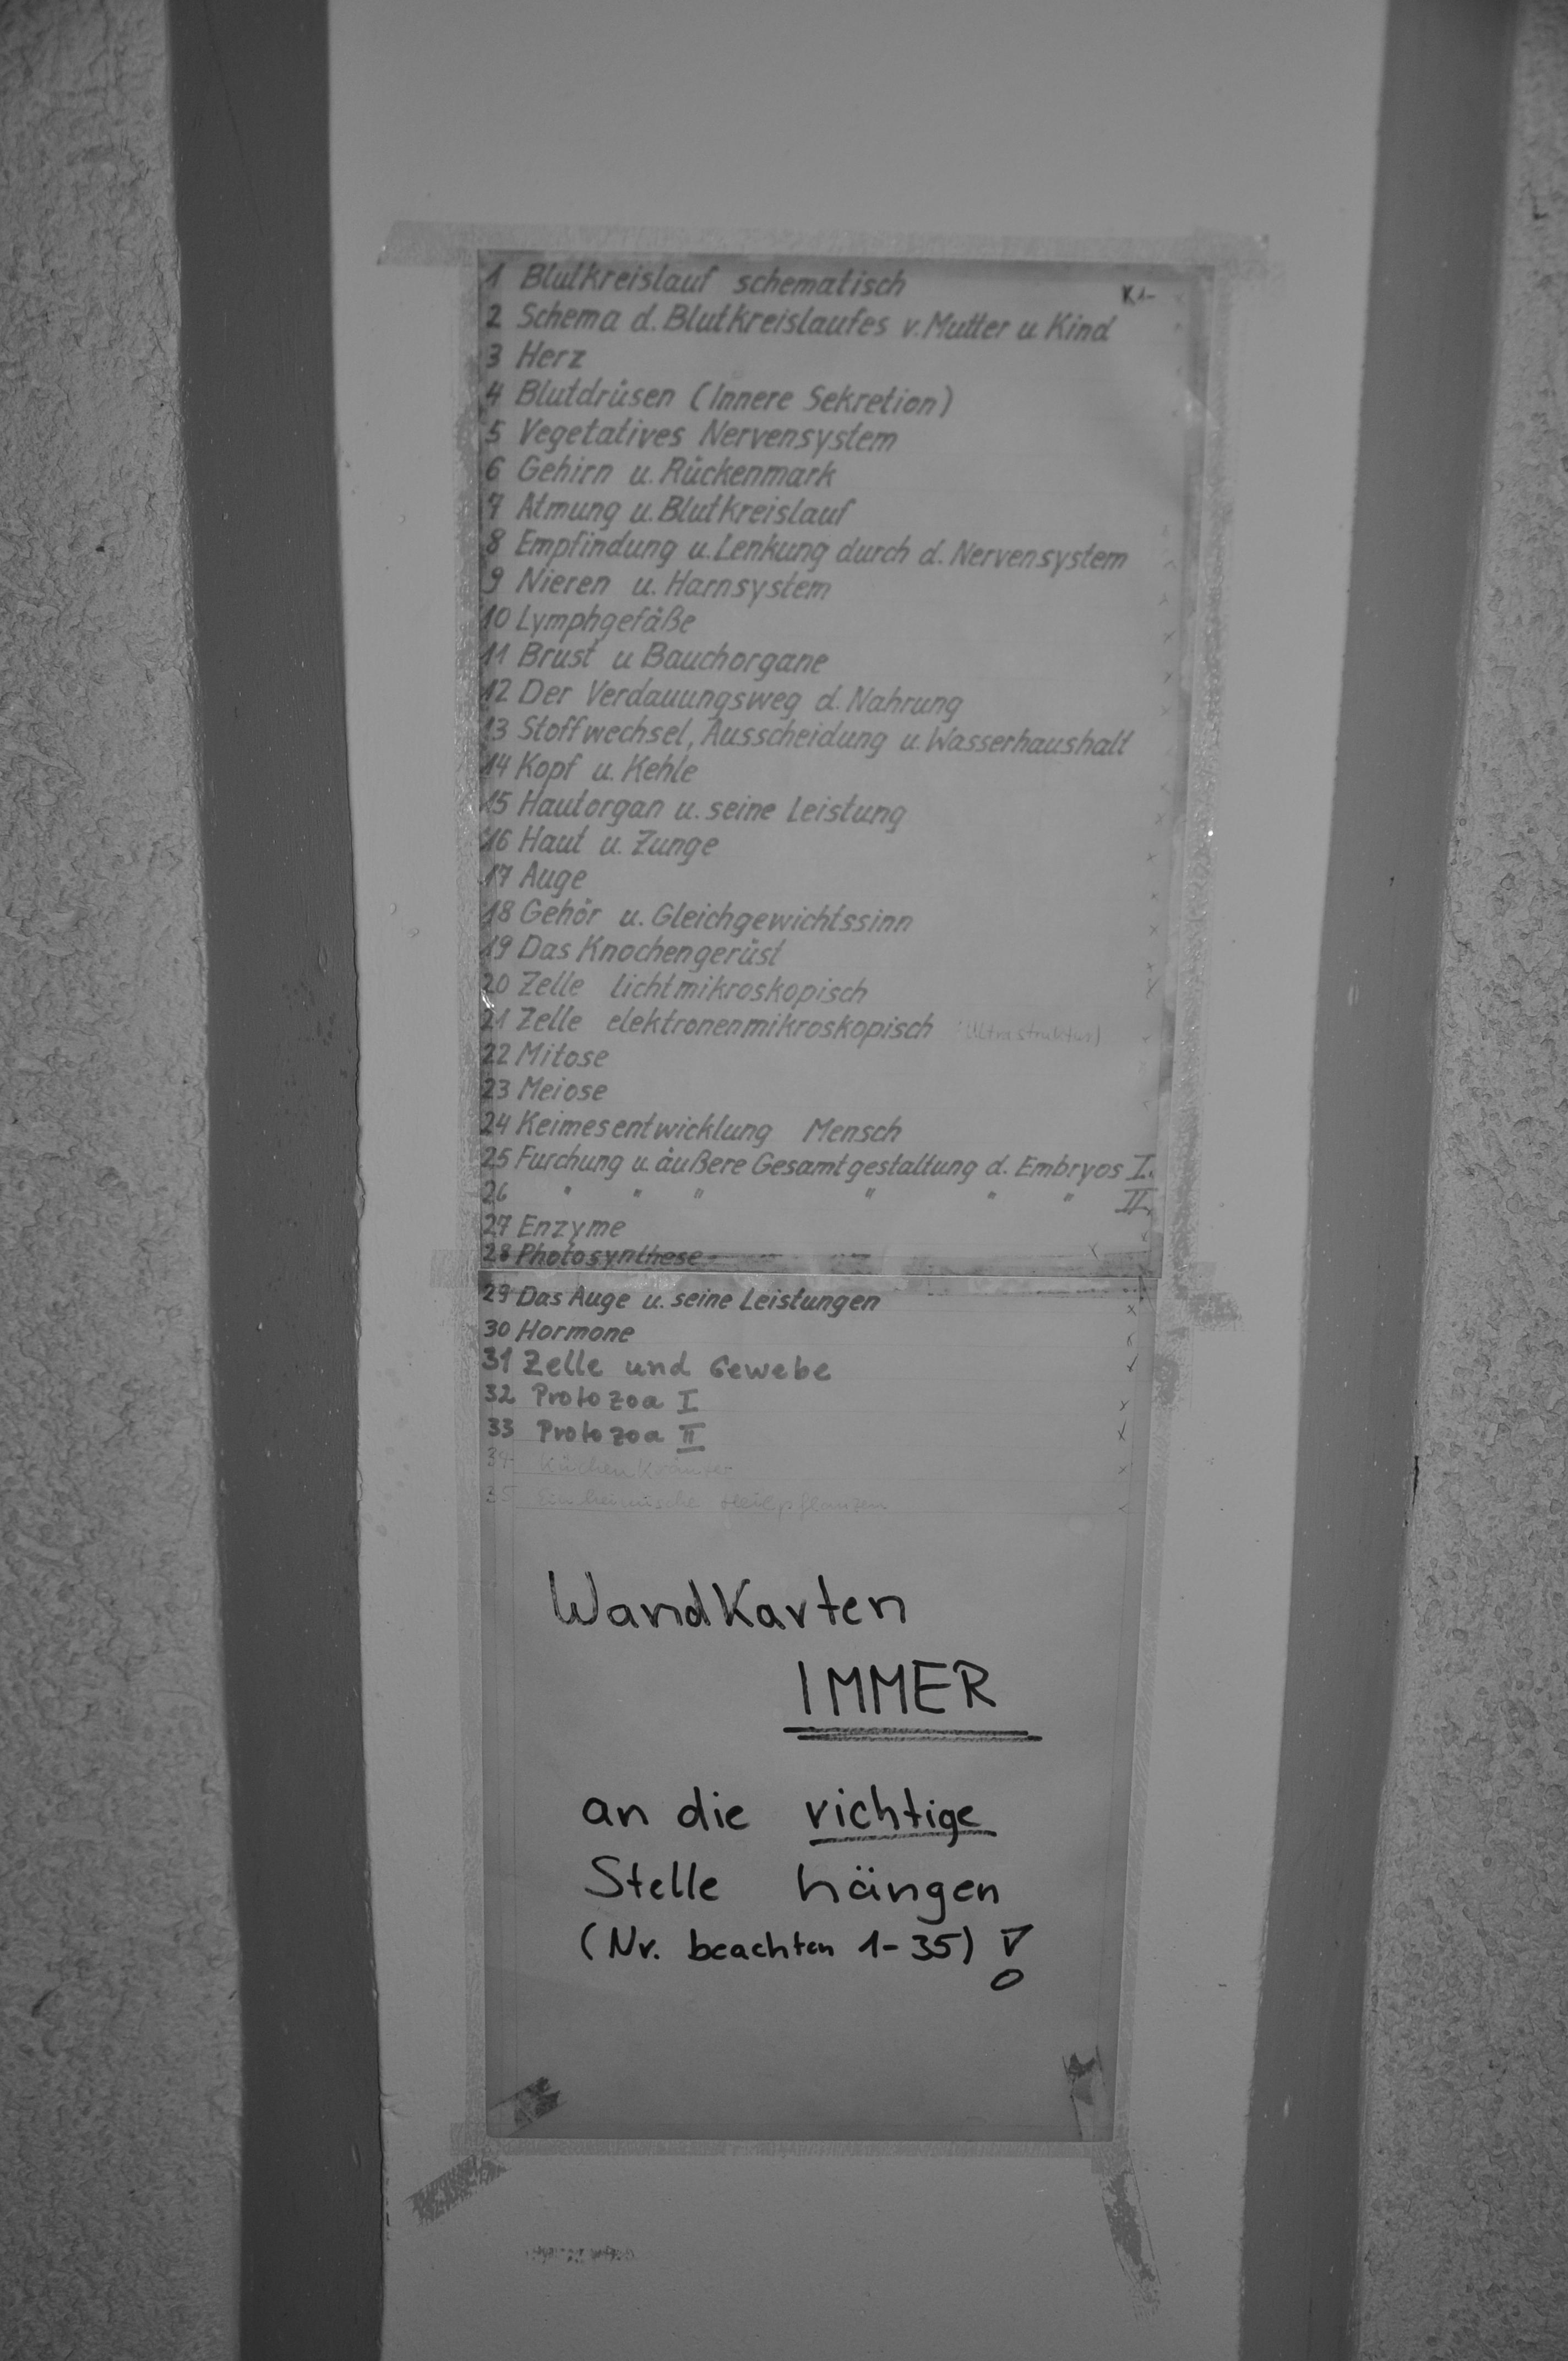 1 Blutkreislauf schematisch
2 Schema d. Blutkreislaufes v. Mutter u Kind
3 Herz
4 Blutdrüsen (Innere Sekretion)
5 Vegetatives Nervensystem
6 Gehirn u. Rückenmark
7 Atmung u. Blutkreislauf
8 Empfindung u. Lenkung durch d. Nervensystem
9 Nieren u. Harnsystem
10 Lymphgefäße
11 Brust u Bauchorgane
12 Der Verdauungsweg d. Nahrung
13 Stoffwechsel, Ausscheidung u. Wasserhaushalt
14 Kopf u. Kehle
15 Hautorgan u. seine Leistung
16 Haut u. Zunge
17 Auge
18 Gehör u. Gleichgewichtssinn
19 Das Knochengerüst
20 Zelle lichtmikroskopisch
21 Zelle elektronenmikroskopisch (Ultrastruktur)
22 Mitose
23 Meiose
24 Keimesentwicklung Mensch
25 Furchung u. äußere Gesamtgestaltung d. Embryos I.
26 " " " " " " II.
27 Enzyme
28 Photosynthese
29 Das Auge u. seine Leistungen
30 Hormone
31 Zelle und Gewebe
32 Protozoa I
33 Protozoa II
34 Küchenkräuter
35 Einheimische Heilpflanzen
Wandkarten
IMMER
an die richtige
Stelle hängen
(Nr. beachten 1-35) !